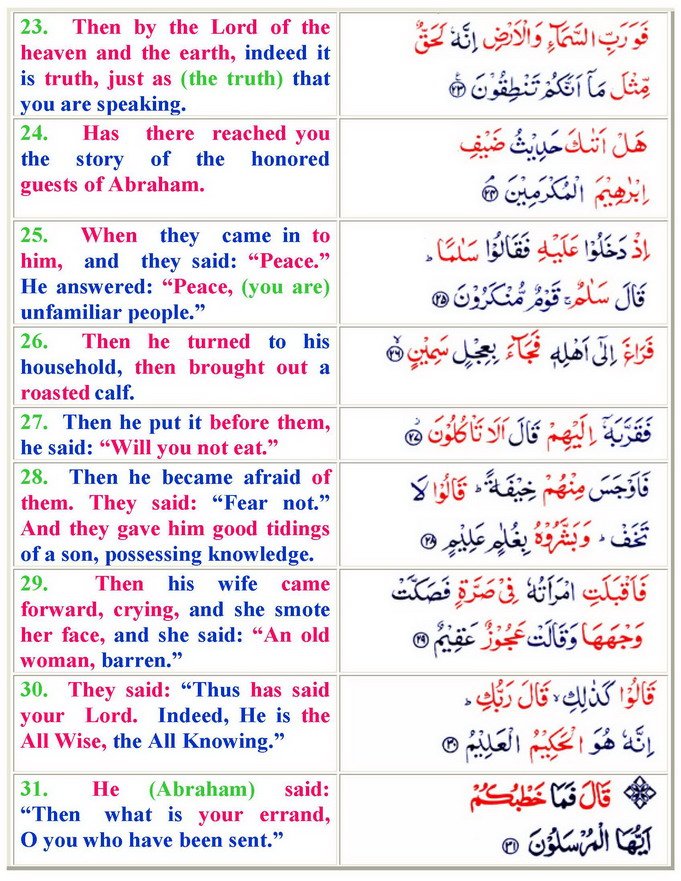 23. Then by the Lord of the
heaven and the earth, indeed it
is truth, just as (the truth) that
you are speaking.
فَوَرَبِّ السَّمَآءِ وَالْاَرْضِ اِنَّهٗ لَحَقٌّ
مِّثْلَ مَاۤ اَنَّكُمْ تَنْطِقُوْنَ ﴿۲۳﴾
24. Has there reached you
the story of the honored
guests of Abraham.
هَلْ اَتٰىكَ حَدِيْثُ ضَيْفِ
اِبْرٰهِيْمَ الْمُكْرَمِيْنَ ﴿۲۴﴾
25. When they came in to
him, and they said: “Peace.”
He answered: “Peace, (you are)
unfamiliar people.”
اِذْ دَخَلُوْا عَلَيْهِ فَقَالُوْا سَلٰمًا ؕ
قَالَ سَلٰمٌ ۚ قَوْمٌ مُّنْكَرُوْنَ ﴿۲۵﴾
26. Then he turned to his
household, then brought out a
roasted calf.
فَرَاغَ اِلٰۤى اَهْلِهٖ فَجَآءَ بِعِجْلٍ سَمِيْنٍ ﴿۲۶﴾
27. Then he put it before them,
he said: “Will you not eat.”
فَقَرَّبَهٗۤ اِلَيْهِمْ قَالَ اَلَا تَاْكُلُوْنَ ﴿۲۷﴾
28. Then he became afraid of
them. They said: “Fear not.”
And they gave him good tidings
of a son, possessing knowledge.
فَاَوْجَسَ مِنْهُمْ خِيْفَةً ؕ قَالُوْا لَا
تَخَفْ ؕ وَبَشَّرُوْهُ بِغُلٰمٍ عَلِيْمٍ ﴿۲۸﴾
29. Then his wife came
forward, crying, and she smote
her face, and she said: “An old
woman, barren.”
فَاَقْبَلَتِ امْرَاَتُهٗ فِيْ صَرَّةٍ فَصَكَّتْ
وَجْهَهَا وَقَالَتْ عَجُوْزٌ عَقِيْمٌ ﴿۲۹﴾
30. They said: “Thus has said
your Lord. Indeed, He is the
All Wise, the All Knowing.”
قَالُوْا كَذٰلِكِ ۙ قَالَ رَبُّكِ ؕ
اِنَّهٗ هُوَ الْحَكِيْمُ الْعَلِيْمُ ﴿۳۰﴾
31. He (Abraham) said:
“Then what is your errand,
O you who have been sent.”
قَالَ فَمَا خَطْبُكُمْ
اَيُّهَا الْمُرْسَلُوْنَ ﴿۳۱﴾